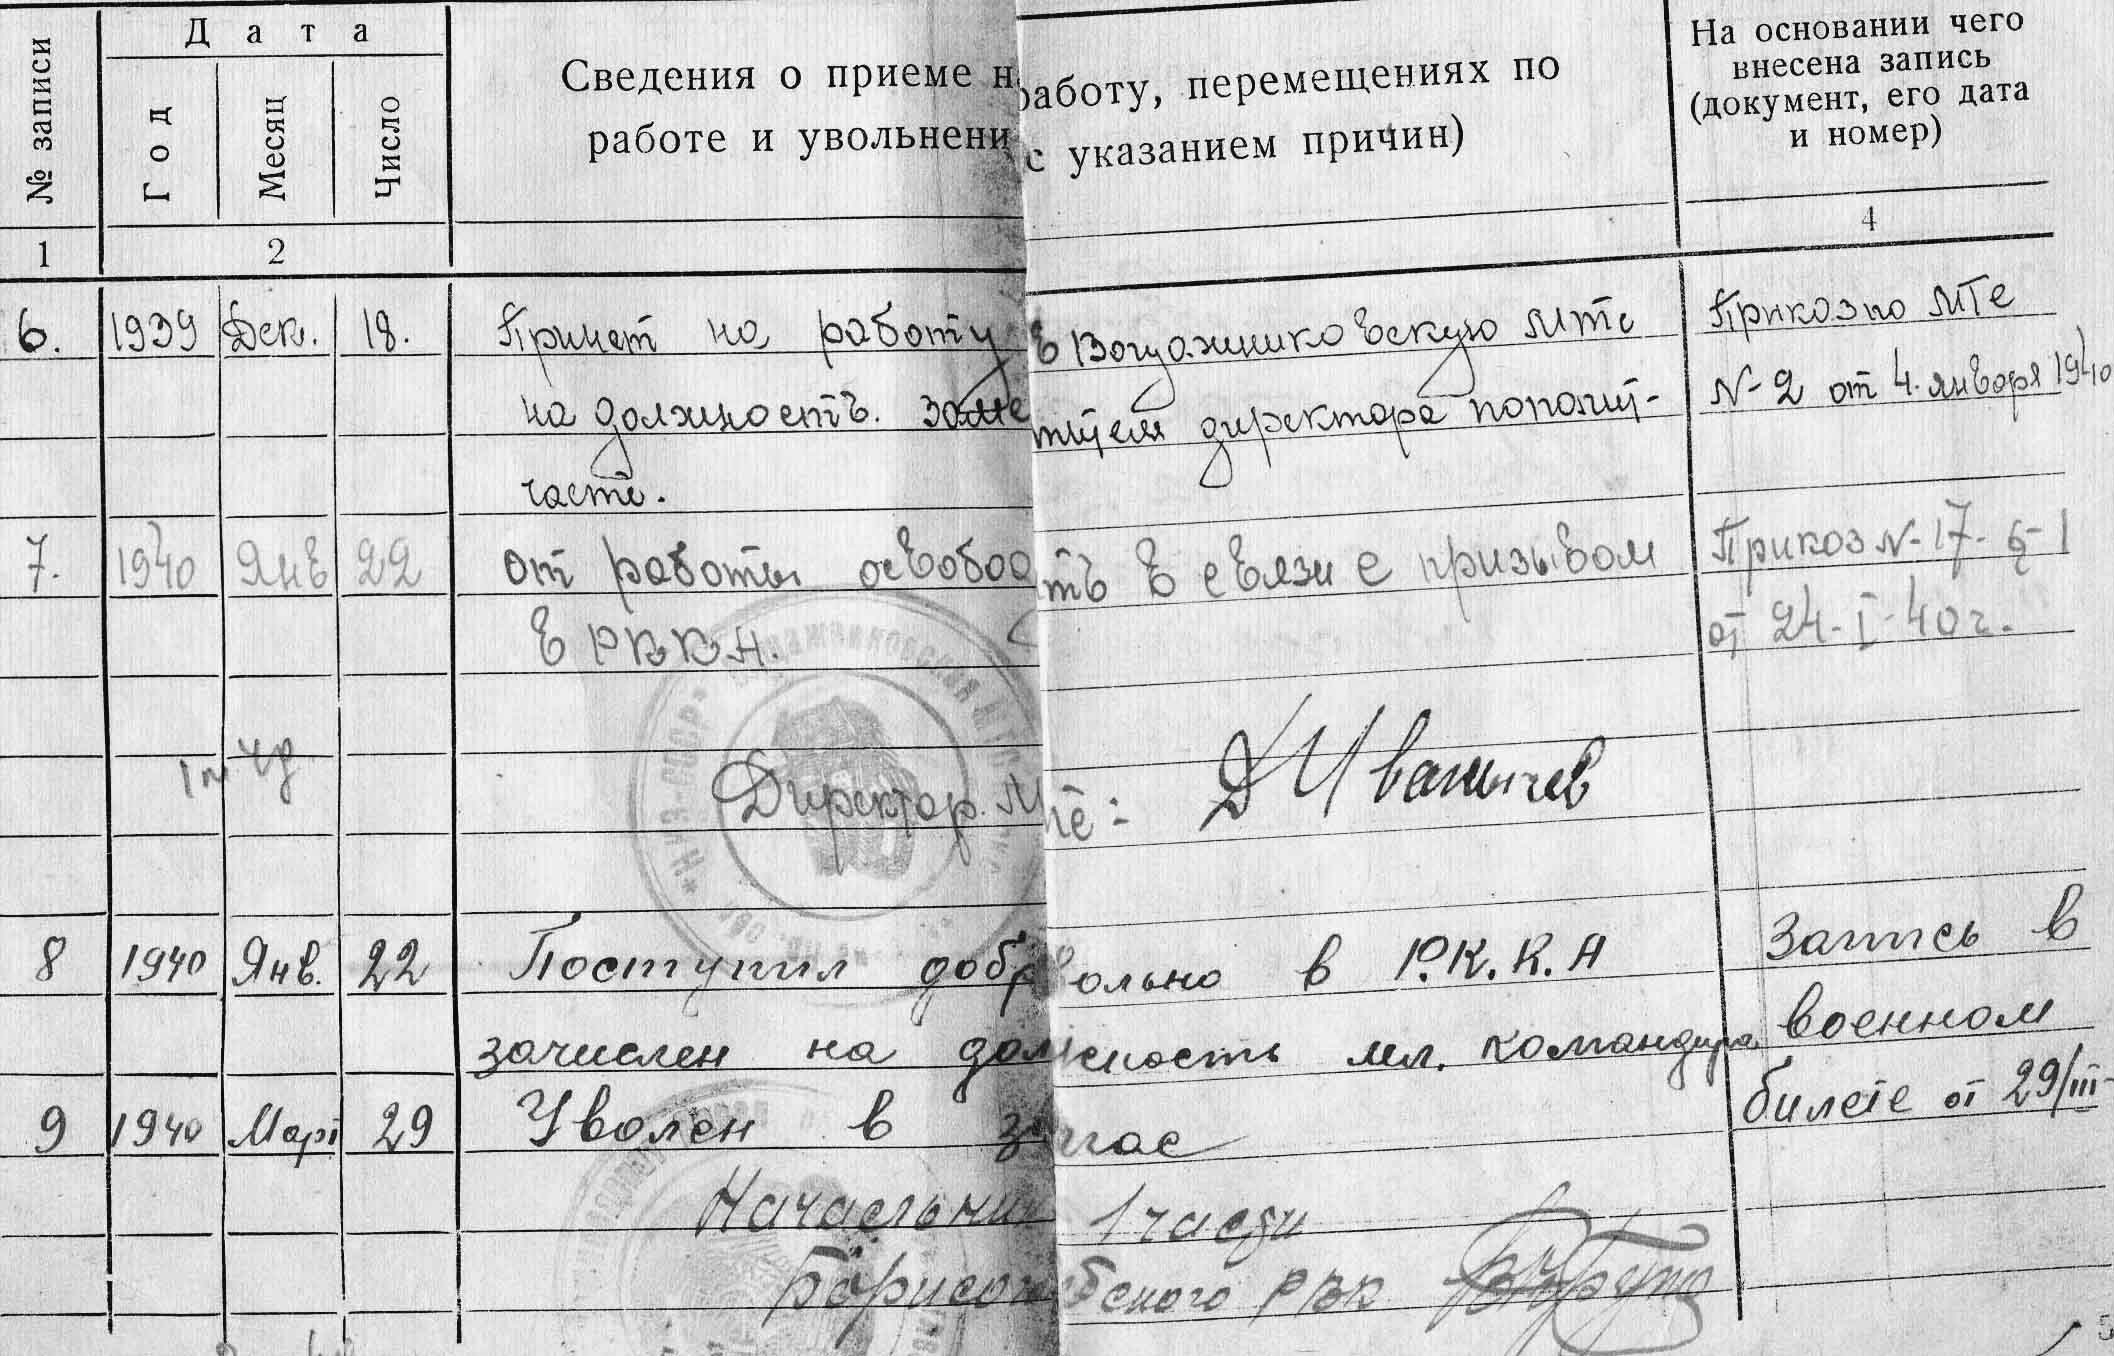 № записи
Дата
Год
Месяц
Число
Сведения о приеме на работу, перемещениях по
работе и увольнени с указанием причин)
На основании чего
внесена запись
(документ, его дата
и номер)
1
2
4
6. 1939 Дек. 18. Принят на работу в МТС Приказ по МТС
на должность. заместителя директора по полит- № 2 от 4. января 1940
части.
7. 1940 Янв 22 от работы освободить в связи с призывом Приказ № 17
в РККА. от 24-I-40 г.
Директор. МТС: Иванычев
8 1940 Янв. 22 Поступил добровольно в Р.К.К.А Запись в
зачислен на должность мл. командира военном
9 1940 Март 29 Уволен в запас билете от 29/III-
Начальник 1 части
Борисоглебского РВК
5